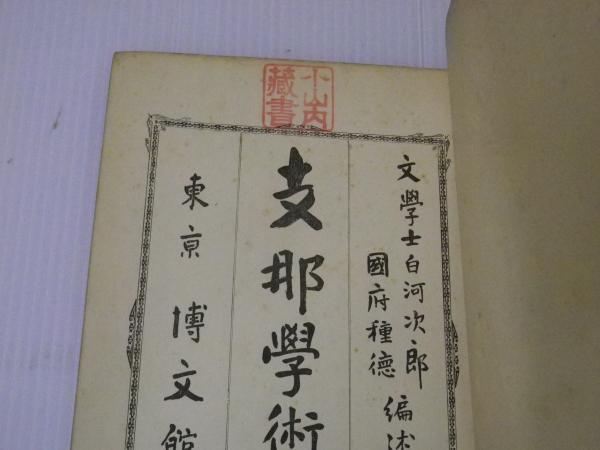 小山内
藏書
文學士白河次郎
國府種德
編述
支那學術
東京
博文館